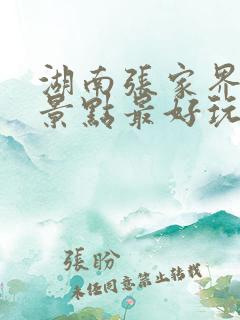 湖南張家界
景點最好玩
張盼
未经同意禁止转载